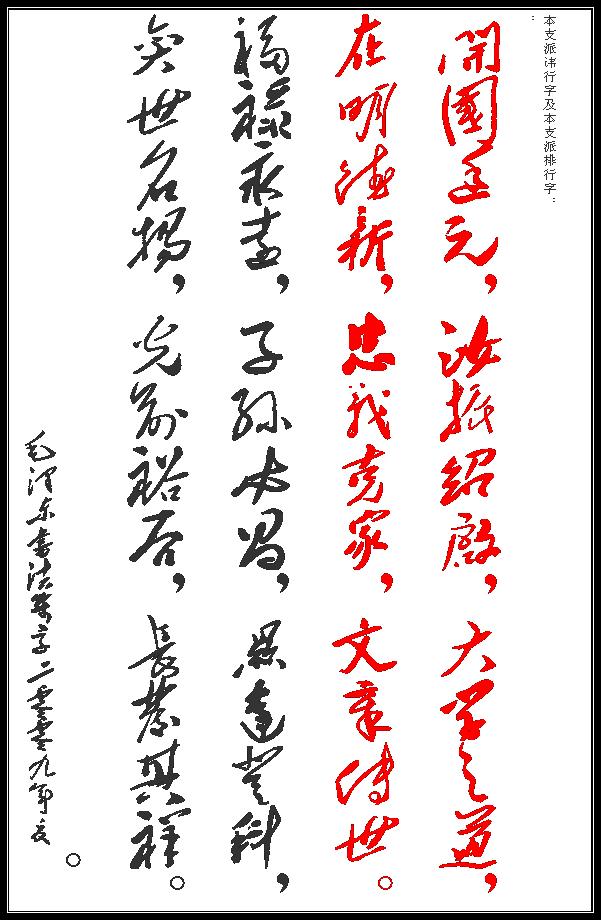 本支派讳行字及本支派排行字：
開國元，汝振紹，大学之道，
在明德新，忠我克家，文章傳世。
福禄永，子孫必昌，達登科，
奕世名揚，光前裕后，長發其祥。
毛澤东書法集字二零零九年夏。